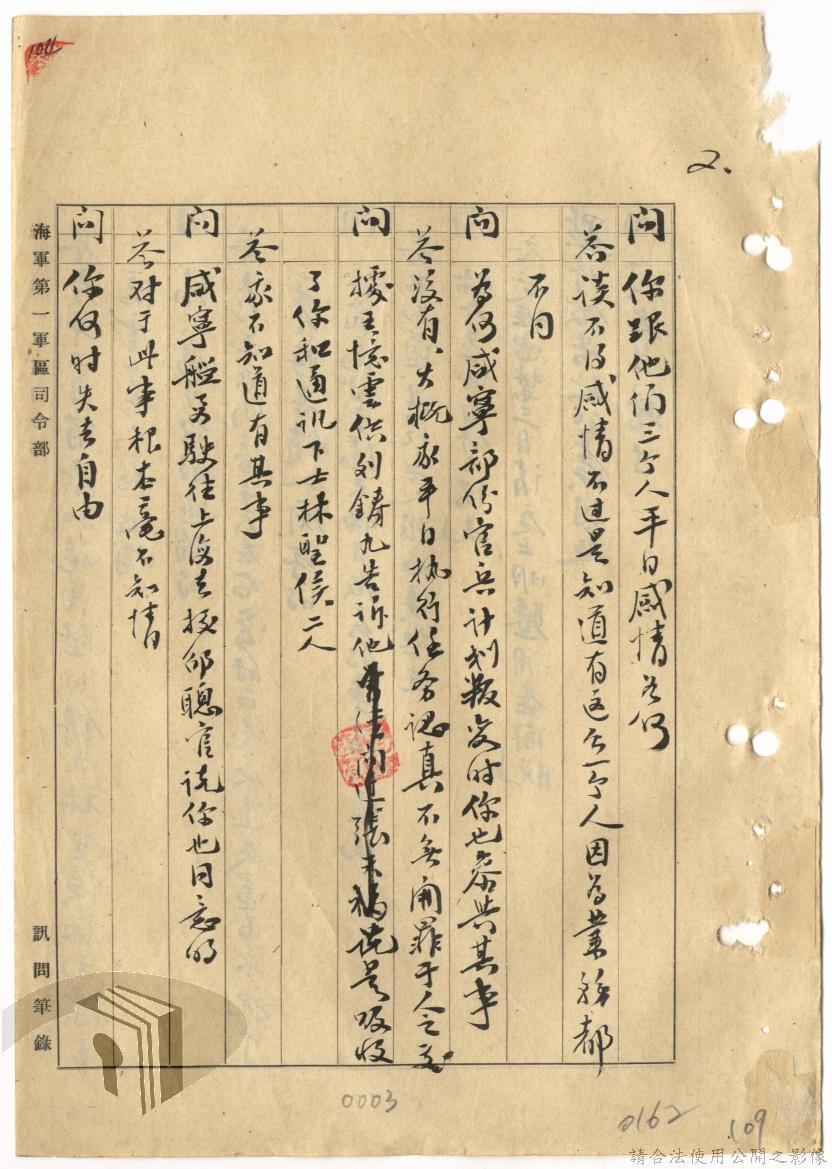 2.
問 你跟他们三个人平日感情怎何
答 談不得感情不过是知道有这么一个人因為業務都
不同
問 為何咸寧部份官兵計划叛变时你也参與其事
答 没有、大概我平日执行任务認真不無開罪于人之處
問 據王憶雲供列鑄九告訴他張 說是吸收
了你和通訊下士林聖俟二人
答 我不知道有其事
問 咸寧艦要駛往上海去投邻聰官說你也同意的
答 对于此事根本毫不知情
問 你何时失去自由
海軍第一軍區司令部
訊問筆錄
104
0003
0162
109
請合法使用公開之影像